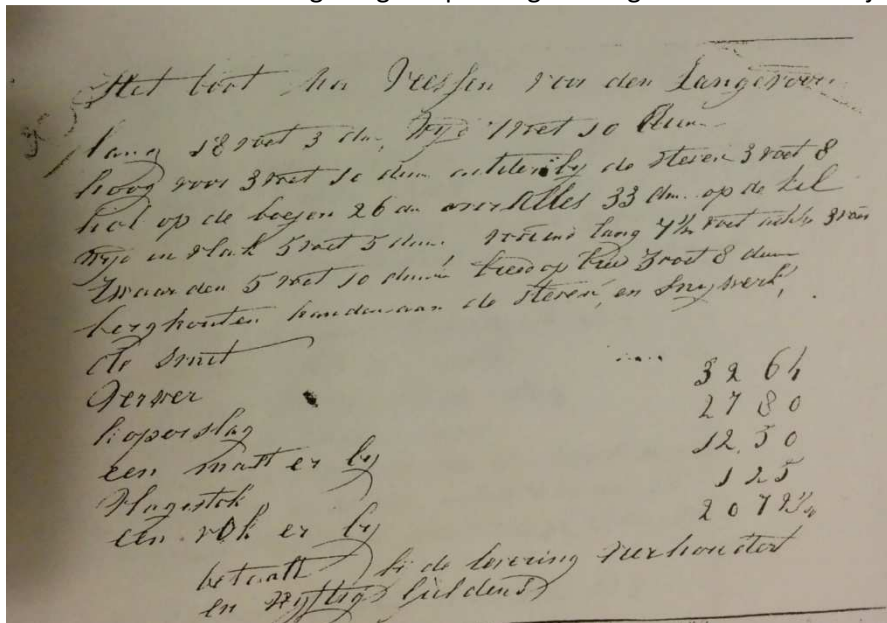 Het boot van den Langeroo
lang 18 voet 3 dm, wyd voet 10 dum
hoog voor 3 voet 10 dum by de steven 3 voet 8
hol op de boejen 26 dm over Alles 33 dm. op de kil
wyd in vlak 5 voet 5 dum lang 7½ voet
Zwaarden 5 voet 10 dum breed op 3 voet 8 dum
berghouten handen aan de steven, en snywerk,
de Smit 32 64
Verwer 27 80
koperslag 12.50
een matt er by 125
Vlagestok 207
een vok er by
betaalt bi de levering vierhondert
en vyftig guldens